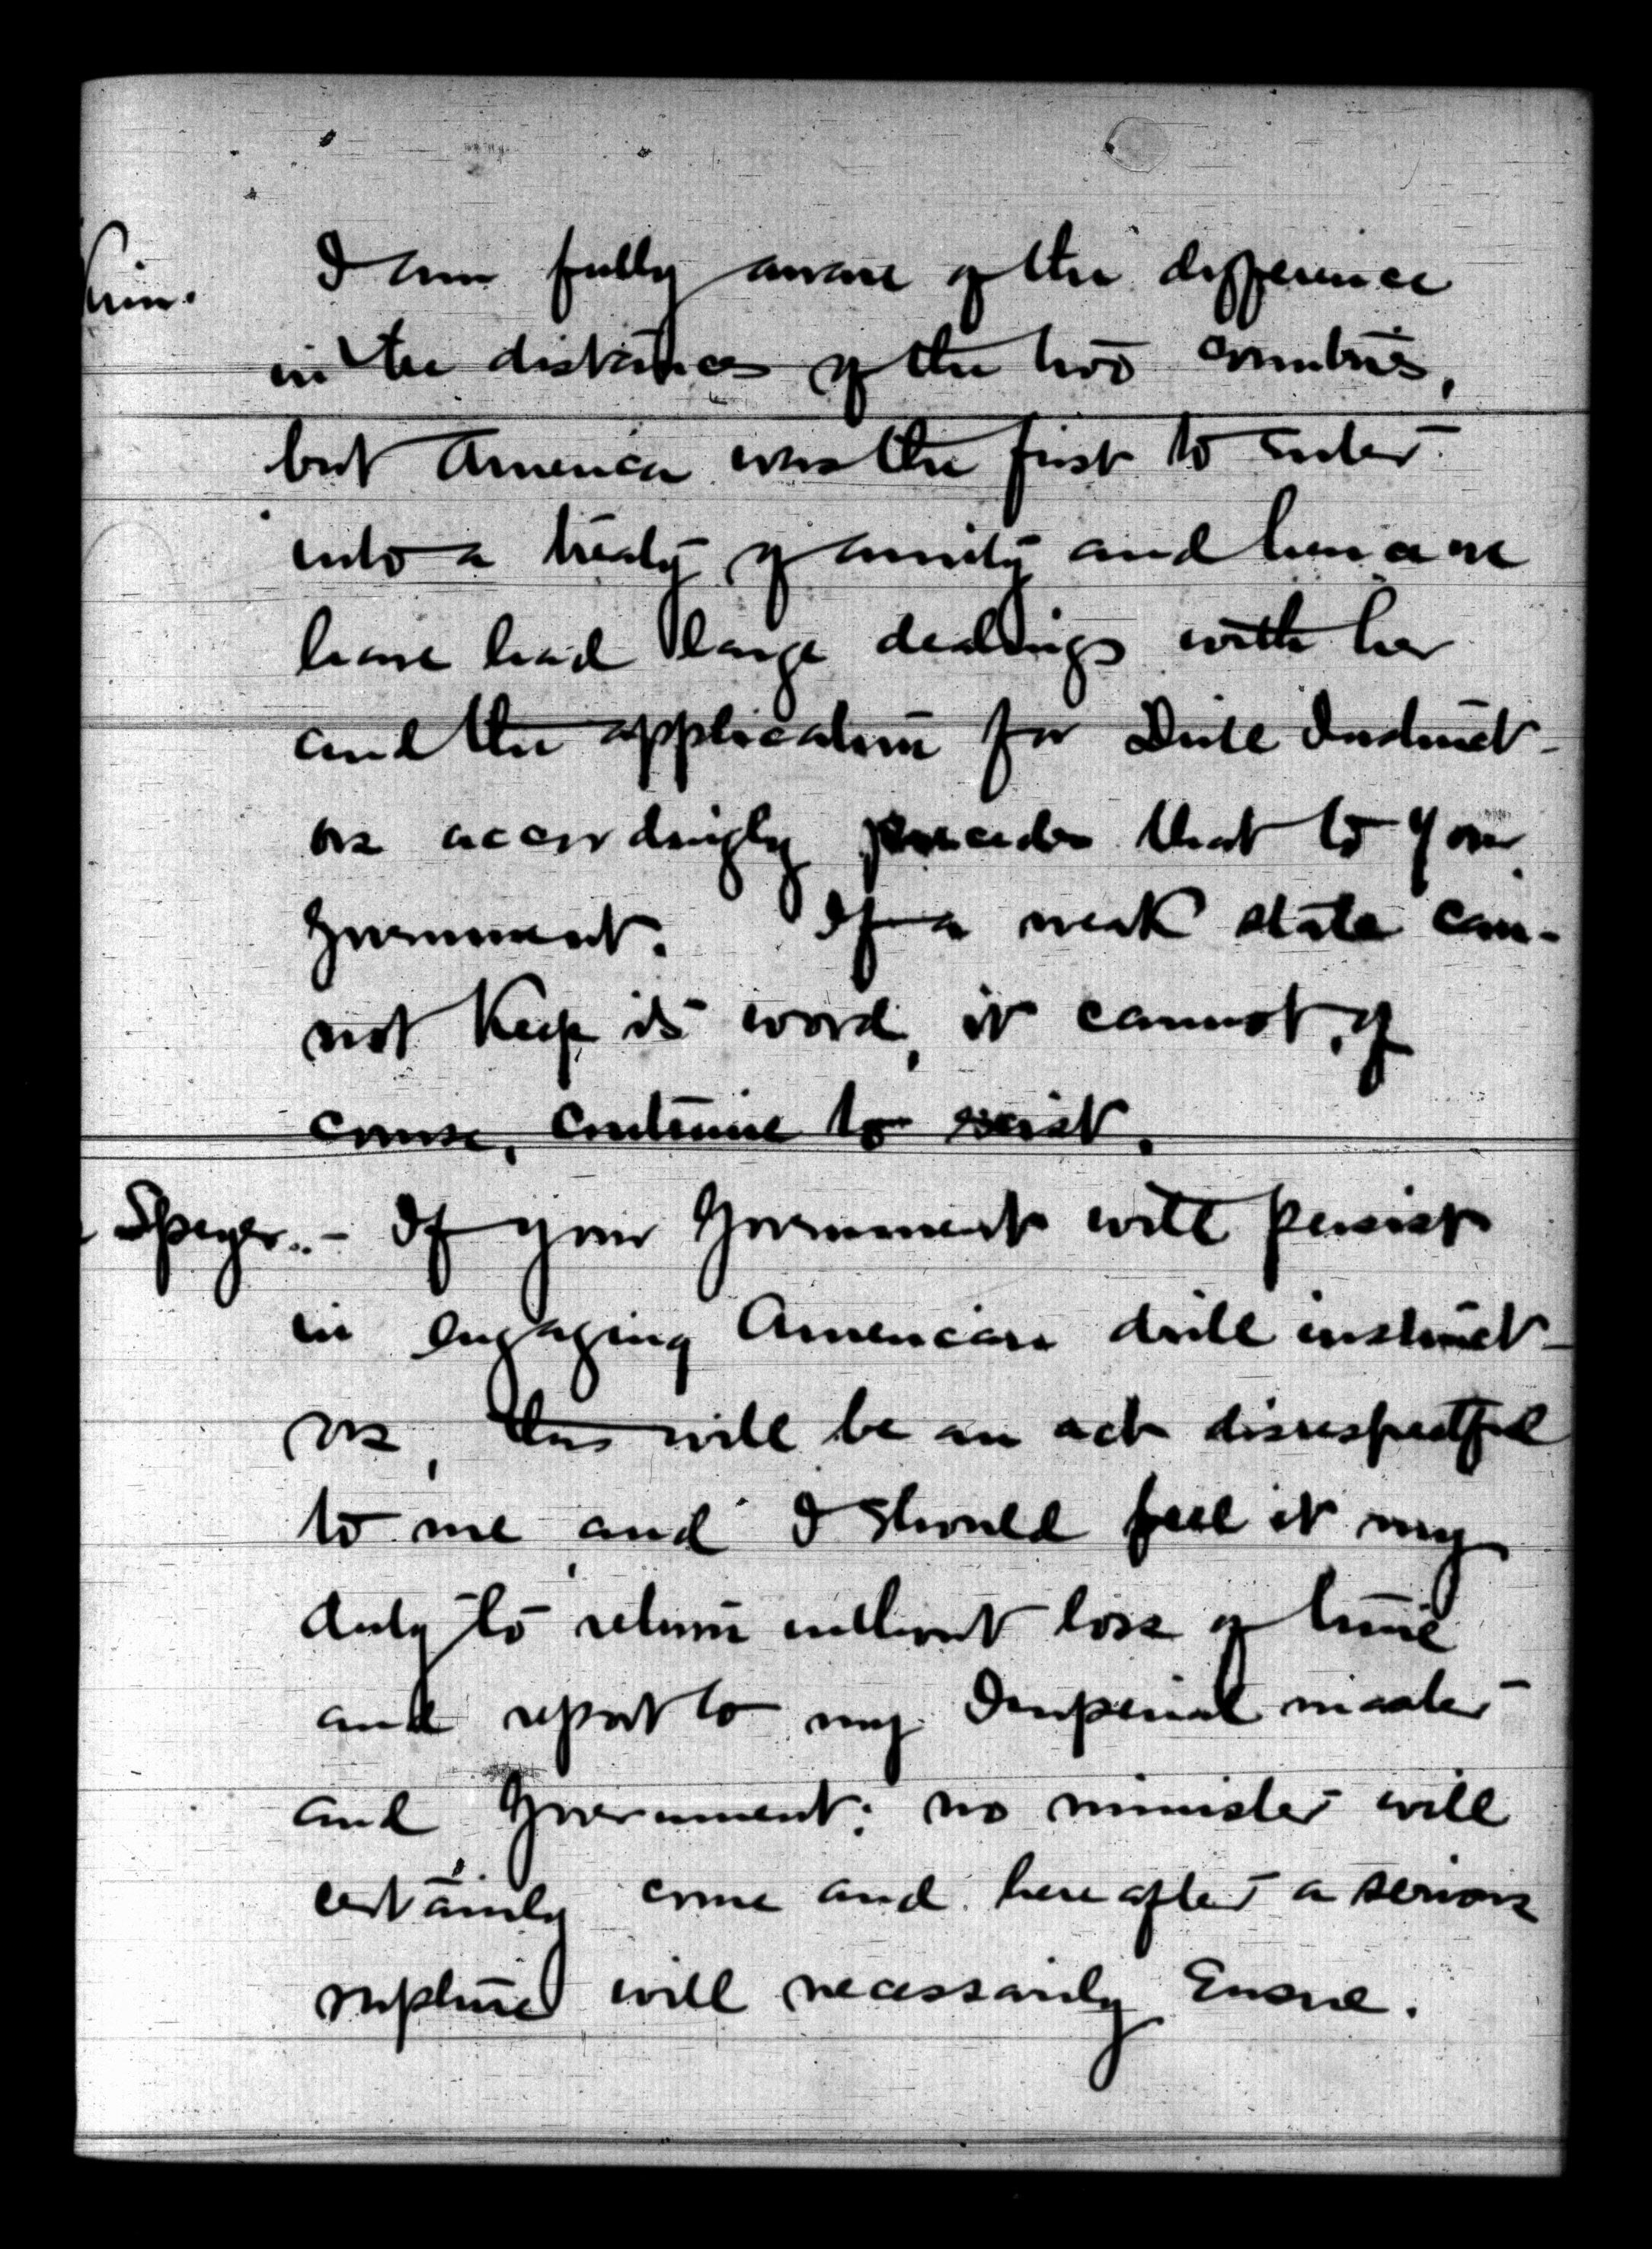 Kim. I am fully aware of the difference
in the distances of the two countries,
but America was the first to enter
into a treaty of amity and hence we
have had large dealings with her
and the application for Drill Instruct-
ors accordingly precedes that to your
Government. If a weak state can-
not keep its word, it cannot, of
course, continue to exist.
Speyer.. - If your Government will persist
in engaging American drill instruct-
ors, this will be an act disrespectful
to me and I should feel it my
duty to return without loss of time
and report to my Imperial master
and Government; no minister will
certainly come and hereafter a serious
rupture will necessarily Ensue.